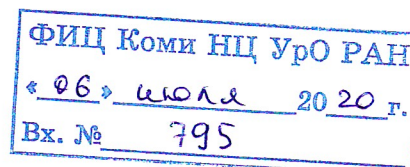 ФИЦ Коми НЦ УрО РАН
« 06 » июля 2020 г.
Вх. № 795